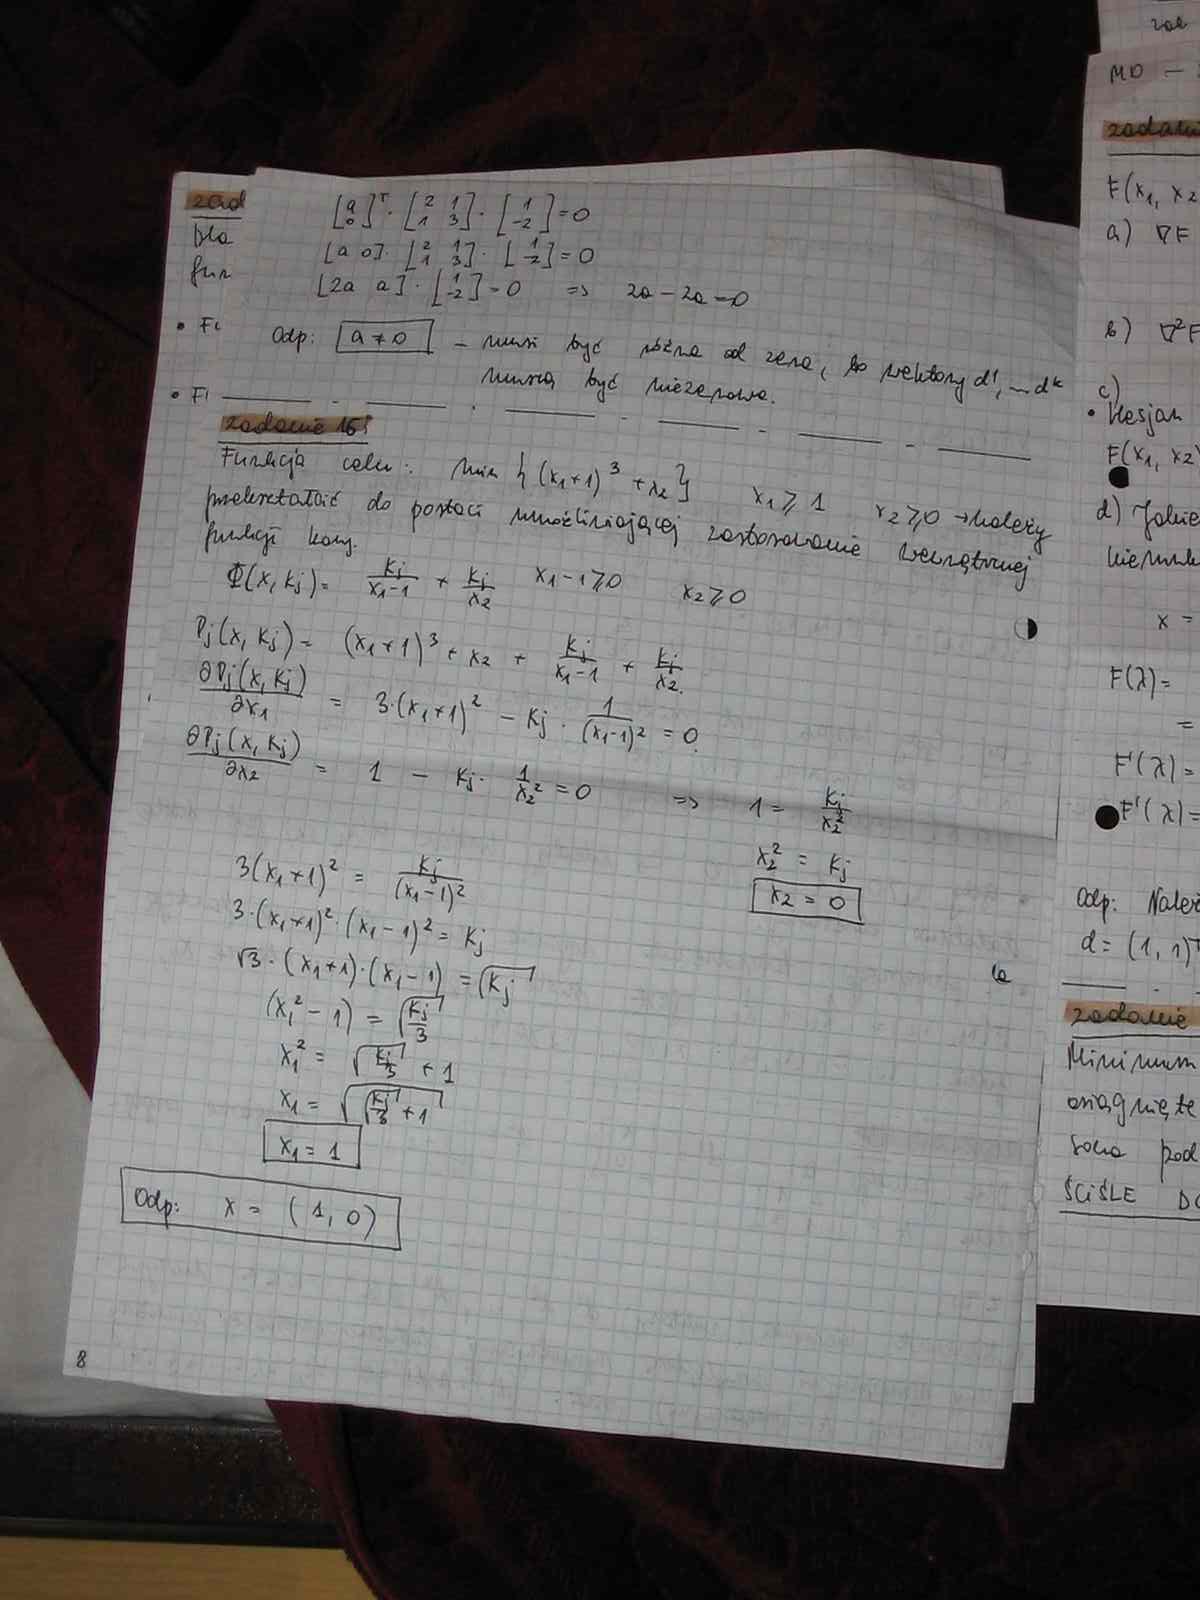 zad
Dla
fun
• F
• F
[a 0]ᵀ · [2 1; 1 3] · [1; -2] = 0
[a 0] · [2 1; 1 3] · [1; -2] = 0
[2a a] · [1; -2] = 0 => 2a - 2a = 0
Odp: a ≠ 0 - musi być różna od zera, bo wektory d¹, ... dᵏ
muszą być niezerowe.
zadanie 16:
Funkcja celu: min { (x₁+1)³ + x₂ } x₁ ≥ 1 x₂ ≥ 0 → należy
przekształcić do postaci umożliwiającej zastosowanie wewnętrznej
funkcji kary.
Φ(x, kj) = kj/(x₁-1) + kj/x₂ x₁-1 ≥ 0 x₂ ≥ 0
Pj(x, kj) = (x₁+1)³ + x₂ + kj/(x₁-1) + kj/x₂
∂Pj(x, kj)/∂x₁ = 3·(x₁+1)² - kj · 1/(x₁-1)² = 0
∂Pj(x, kj)/∂x₂ = 1 - kj · 1/x₂² = 0 => 1 = kj/x₂²
x₂² = kj
x₂ = 0
3(x₁+1)² = kj/(x₁-1)²
3·(x₁+1)²·(x₁-1)² = kj
√3·(x₁+1)·(x₁-1) = √kj
(x₁²-1) = √(kj/3)
x₁² = √(kj/3) + 1
x₁ = √(√(kj/3) + 1)
x₁ = 1
Odp: x = (1, 0)
8
MD —
zadanie
F(x₁, x₂
a) ∇F
b) ∇²F
c)
• Hesjan
F(x₁, x₂)
d) Jakie
kierunk
x =
F(λ) =
=
F'(λ) =
F'(λ) =
Odp: Należ
d = (1, 1)ᵀ
zadanie
Minimum
osiągnięte
pod
ŚCIŚLE DO